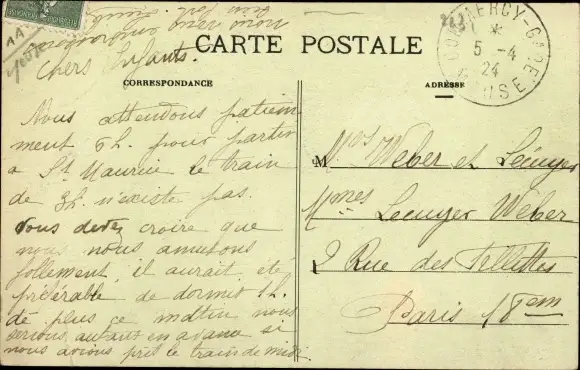 CARTE POSTALE
CORRESPONDANCE
ADRESSE
5 - 4
24
Chers Enfants.
Nous attendons patiem
ment 6h. pour partir
a St Maurice le train
de 3h. n'existe pas.
Vous devez croire que
nous nous amusons
follement, il aurait été
préférable de dormir 1h.
de plus ce matin nous
serions autant en avance si
nous avions pris le train de midi
Mrs Weber et Lécuyer
Mmes Lecuyer Weber
2 Rue des Fillettes
Paris 18em